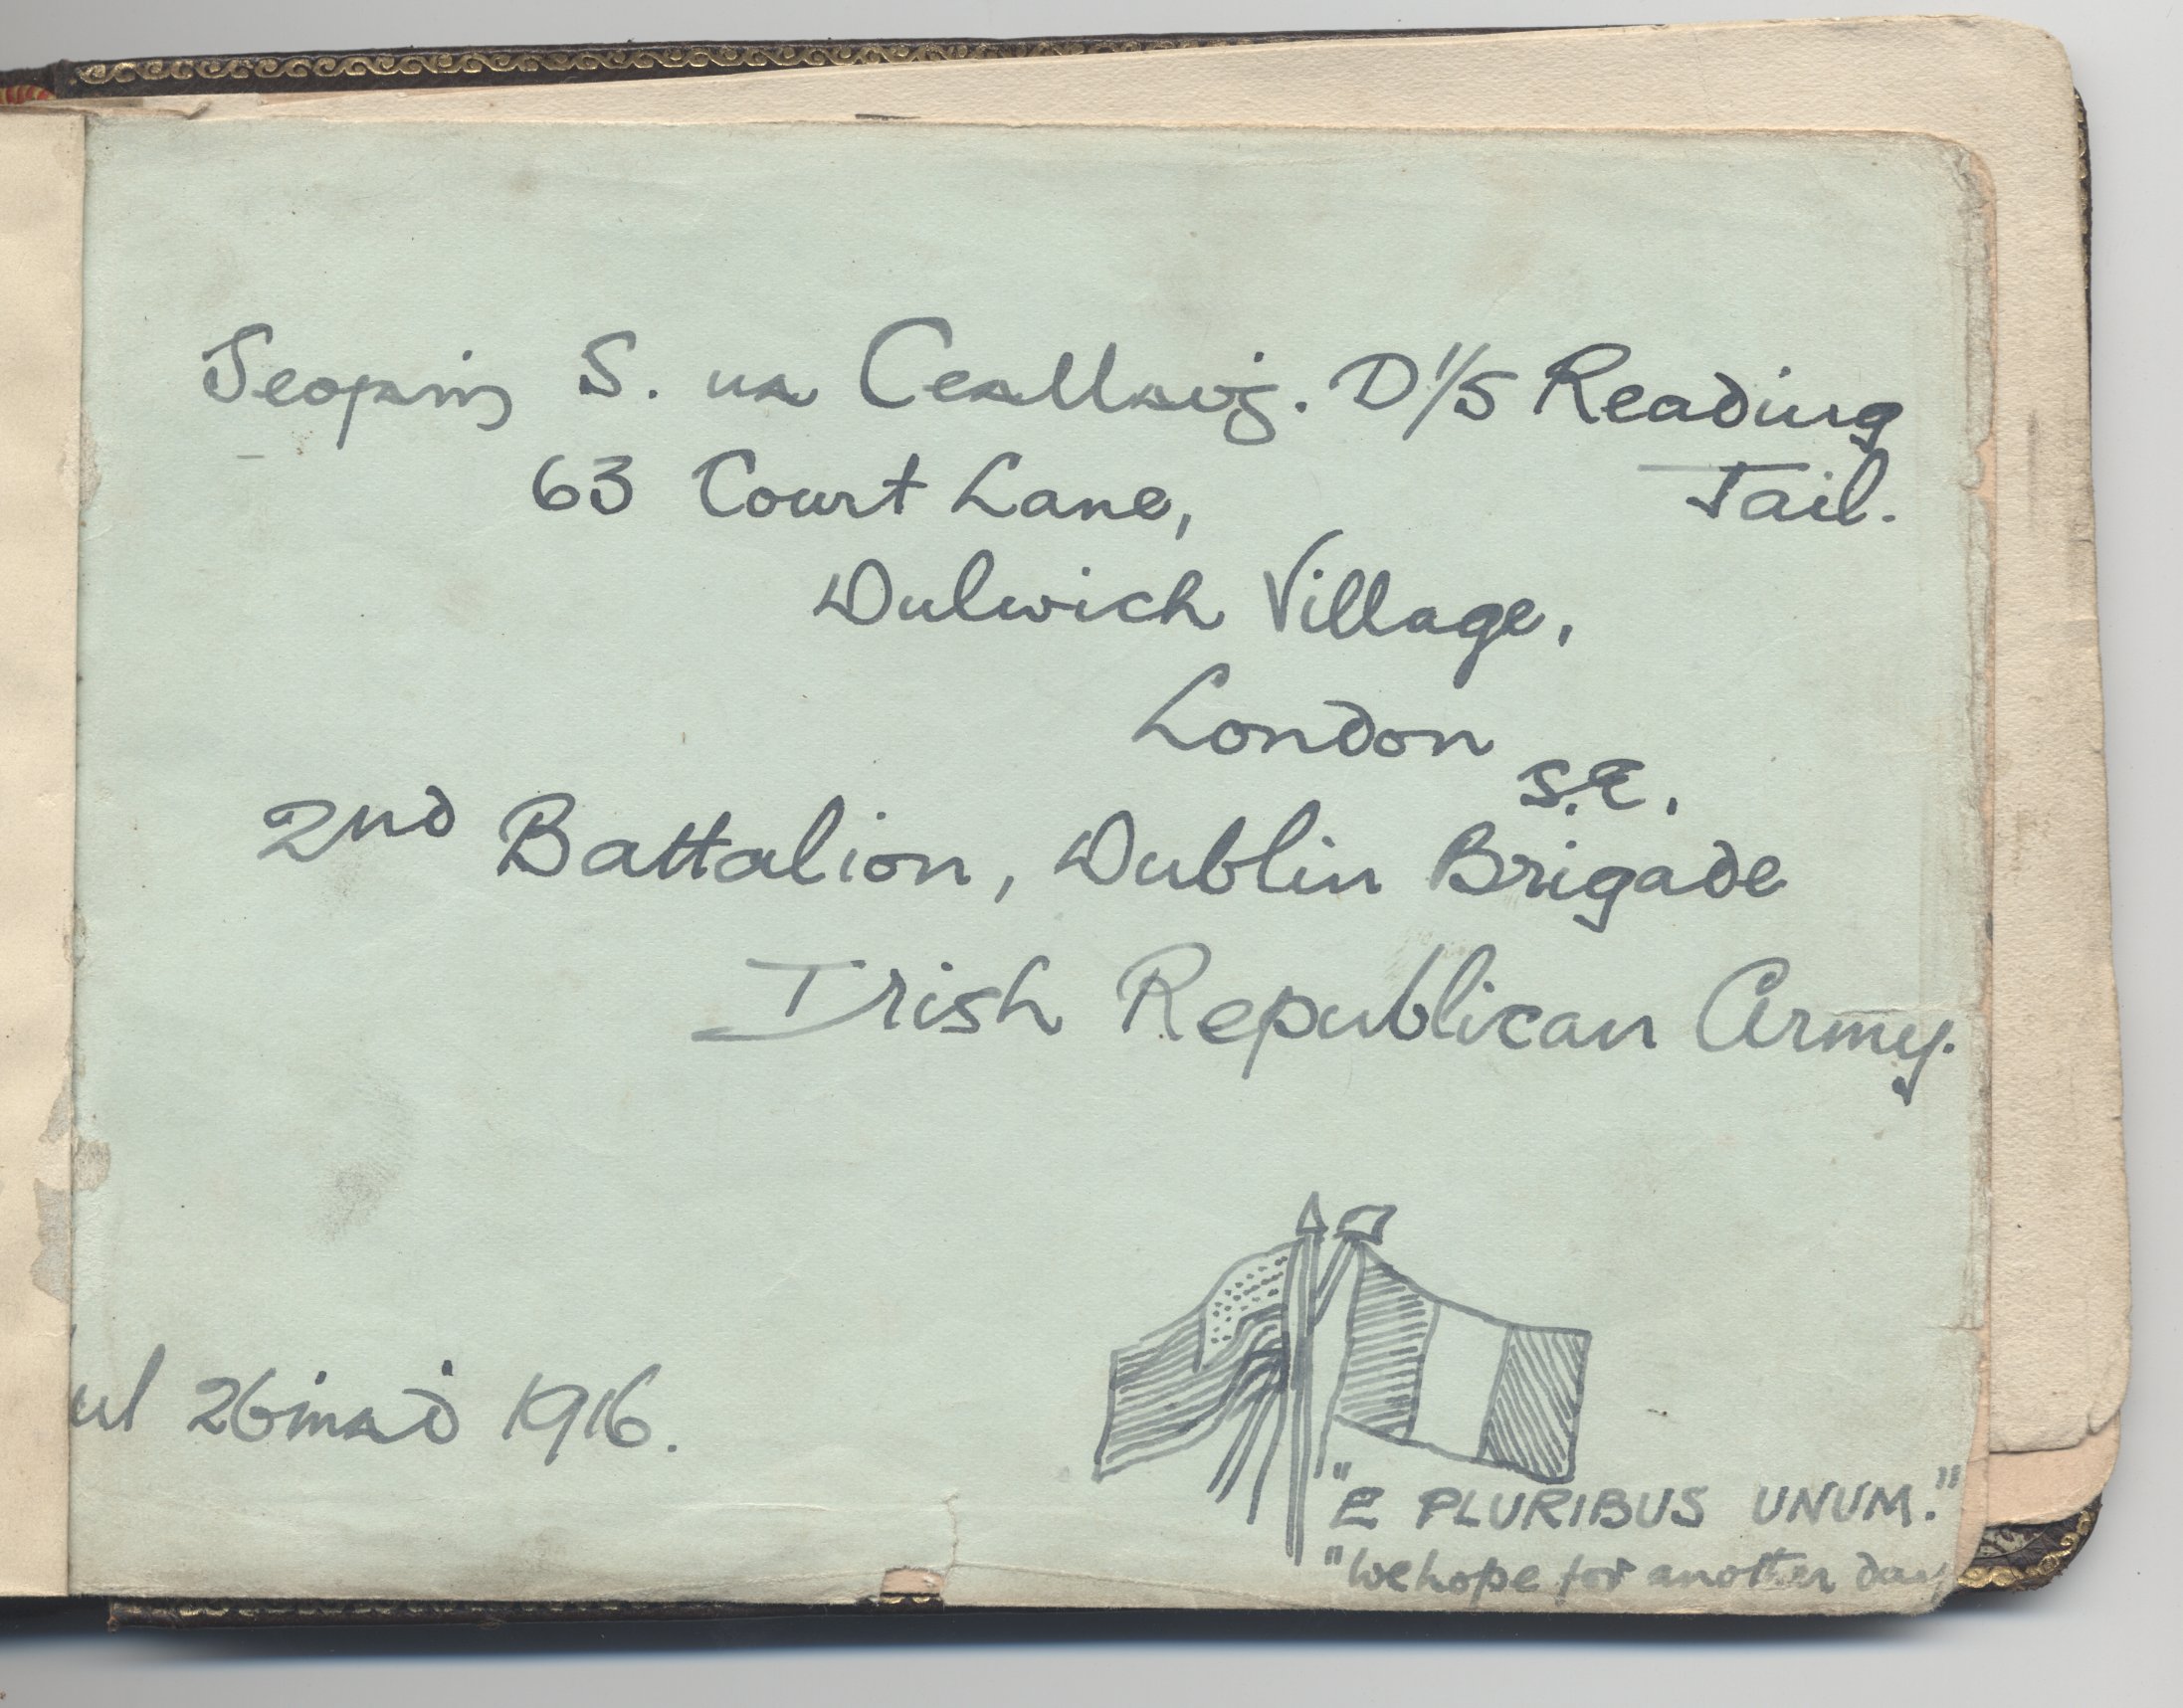 Seoráis S. ua Ceallaiġ. D 1/5 Reading
Jail.
63 Court Lane,
Dulwich Village,
London
S.E.
2nd Battalion, Dublin Brigade
Irish Republican Army.
26iṁaḋ 1916.
"E PLURIBUS UNUM."
"We hope for another day